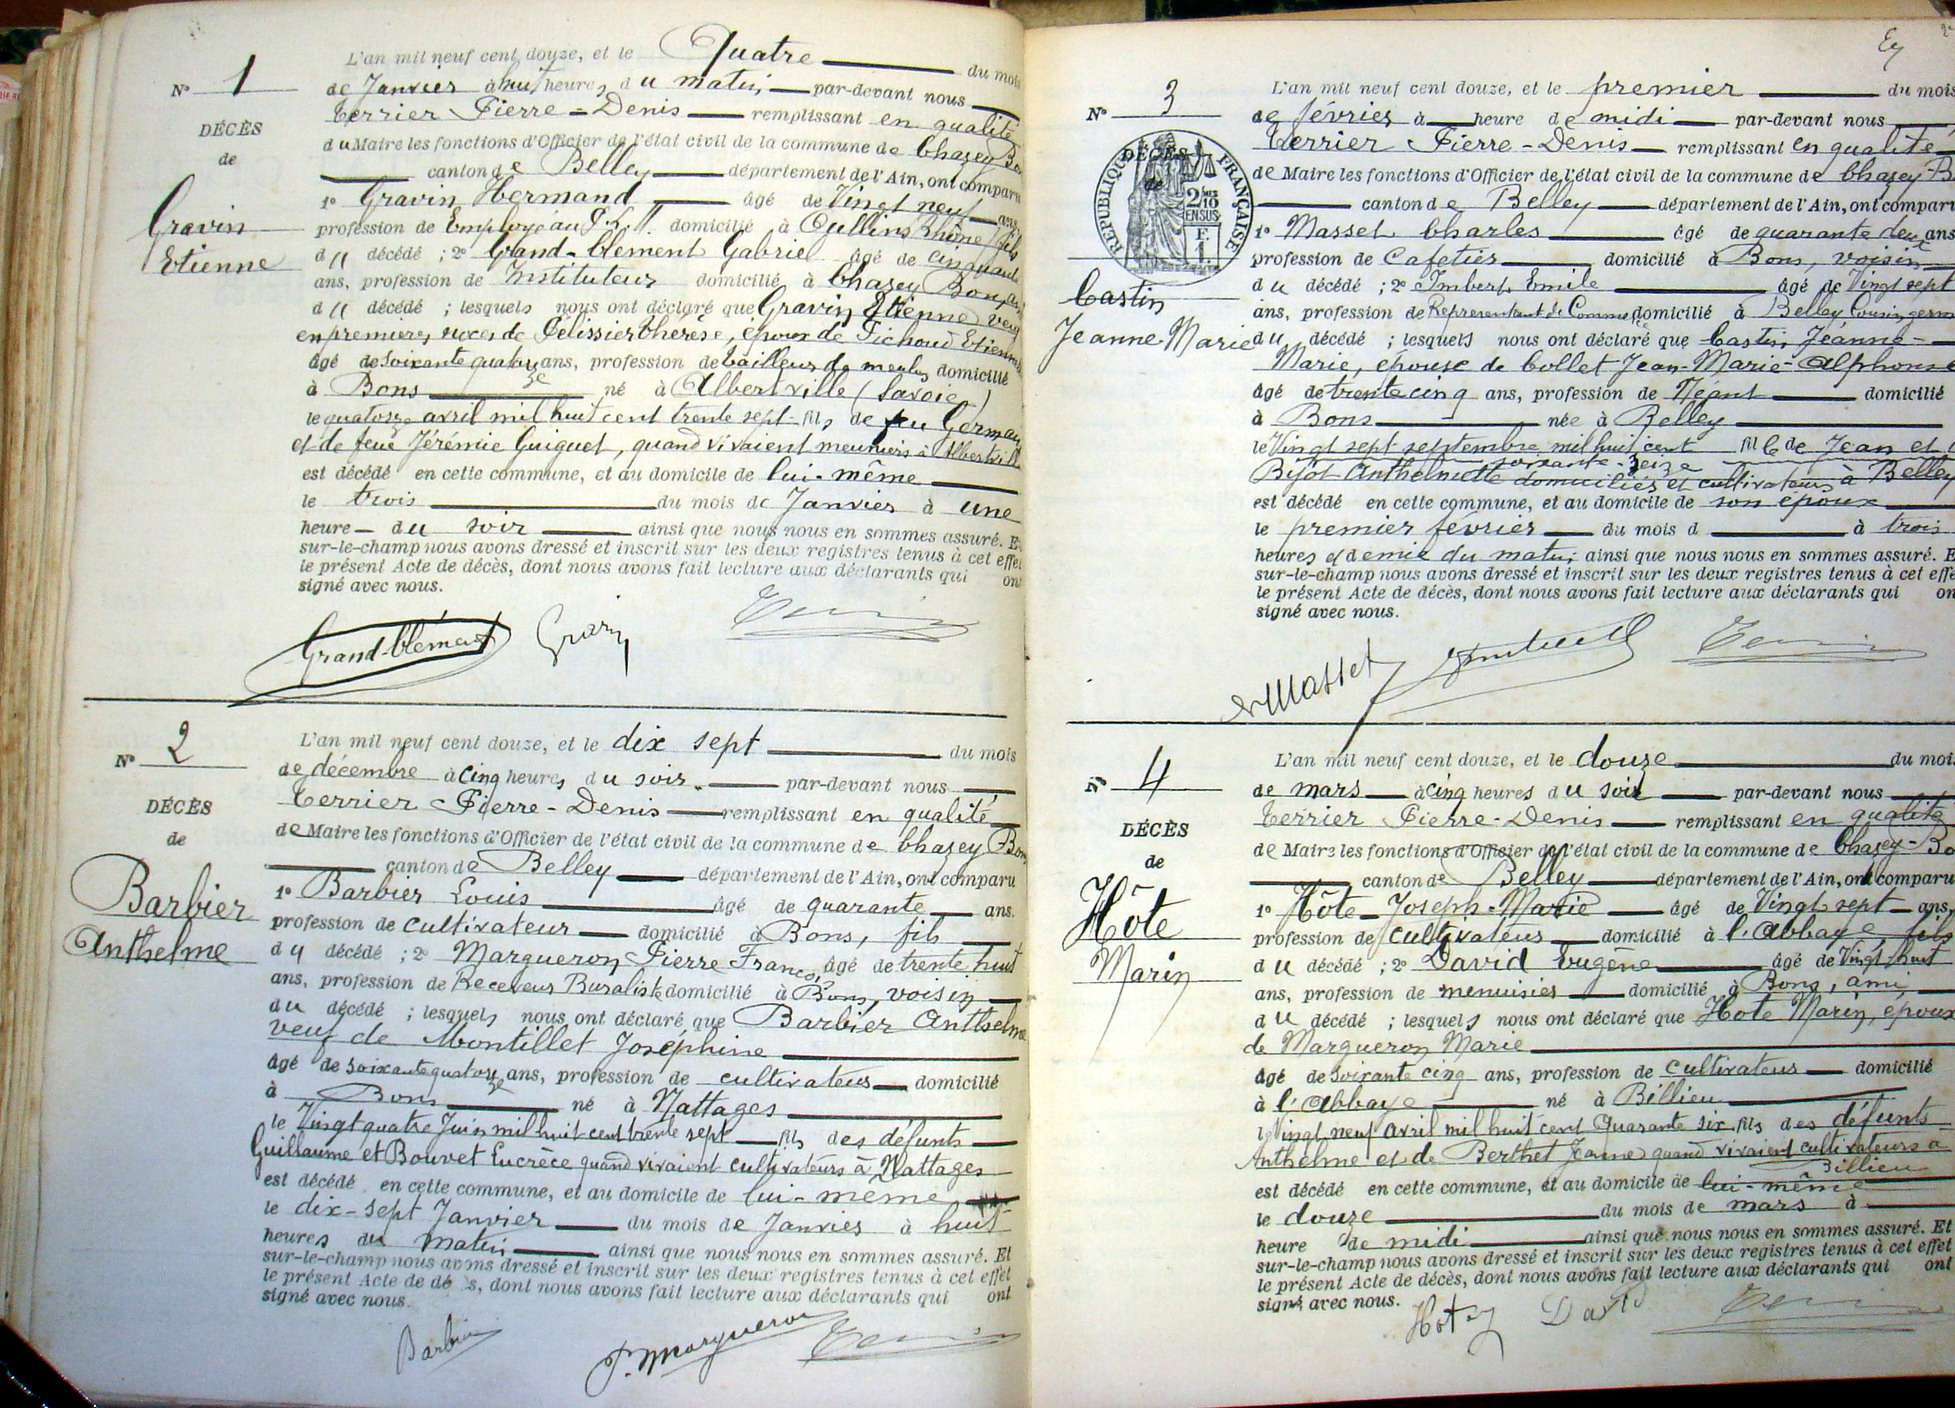 N° 1
DÉCÈS
de
Gravin
Etienne
L'an mil neuf cent douze, et le Quatre du mois
de Janvier à huit heures du matin par-devant nous
Terrier Pierre-Denis remplissant en qualité
du Maire les fonctions d'Officier de l'état civil de la commune de Chazey Bon
canton de Belley département de l'Ain, ont comparu
1° Gravin Hermand âgé de Vingt neuf ans
profession de Employé au P. L. M. domicilié à Oullins Rhône, fils
du décédé ; 2° Grand-Clément Gabriel âgé de cinquante
ans, profession de Instituteur domicilié à Chazey Bons
du décédé ; lesquels nous ont déclaré que Gravin Etienne veuf
en premières noces de Pélissier Therèse, époux de Pichoud Etiennette
âgé de soixante quatorze ans, profession de tailleur de meules domicilié
à Bons né à Albertville (Savoie)
le quatorze avril mil huit cent trente sept fils de feu Germain
et de feue Jérémie Guiguet, quand vivaient meuniers à Albertville
est décédé en cette commune, et au domicile de lui-même
le trois du mois de Janvier à une
heure du soir ainsi que nous nous en sommes assuré. Et
sur-le-champ nous avons dressé et inscrit sur les deux registres tenus à cet effet
le présent Acte de décès, dont nous avons fait lecture aux déclarants qui ont
signé avec nous.
Grand-Clément Gravin
N° 2
DÉCÈS
de
Barbier
Anthelme
L'an mil neuf cent douze, et le dix sept du mois
de décembre à cinq heures du soir. par-devant nous
Terrier Pierre-Denis remplissant en qualité
de Maire les fonctions d'Officier de l'état civil de la commune de Chazey Bons
canton de Belley département de l'Ain, ont comparu
1° Barbier Louis âgé de quarante ans.
profession de cultivateur domicilié à Bons, fils
du décédé ; 2° Margueron Pierre François âgé de trente huit
ans, profession de Receveur Buraliste domicilié à Bons, voisin
du décédé ; lesquels nous ont déclaré que Barbier Anthelme
veuf de Montillet Joséphine
âgé de soixante quatorze ans, profession de cultivateur domicilié
à Bons né à Nattages
le Vingt quatre Juin mil huit cent trente sept fils des défunts
Guillaume et Bouvet Lucrèce quand vivaient cultivateurs à Nattages
est décédé en cette commune, et au domicile de lui-même
le dix-sept Janvier du mois de Janvier à huit
heures du matin ainsi que nous nous en sommes assuré. Et
sur-le-champ nous avons dressé et inscrit sur les deux registres tenus à cet effet
le présent Acte de décès, dont nous avons fait lecture aux déclarants qui ont
signé avec nous.
Barbier P. Margueron
N° 3
DÉCÈS
de
RÉPUBLIQUE FRANÇAISE
2/10 EN SUS
F. 1.
Castin
Jeanne-Marie
L'an mil neuf cent douze, et le premier du mois
de février à heure de midi par-devant nous
Terrier Pierre-Denis remplissant en qualité
de Maire les fonctions d'Officier de l'état civil de la commune de Chazey-B
canton de Belley département de l'Ain, ont comparu
1° Masset Charles âgé de quarante deux ans
profession de Cafetier domicilié à Bons, voisin
du décédé ; 2° Imbert Emile âgé de Vingt sept
ans, profession de Représentant de Commerce domicilié à Belley Cousin germ
du décédé ; lesquels nous ont déclaré que Castin Jeanne-
Marie, épouse de Collet Jean-Marie-Alphonse
âgé de trente cinq ans, profession de Néant domicilié
à Bons née à Belley
le Vingt sept septembre mil huit cent soixante-seize fille de Jean et
Bijot Anthelmette domiciliés et cultivateurs à Belley
est décédé en cette commune, et au domicile de son époux
le premier fevrier du mois d à trois
heures et demie du matin ainsi que nous nous en sommes assuré. E
sur-le-champ nous avons dressé et inscrit sur les deux registres tenus à cet effe
le présent Acte de décès, dont nous avons fait lecture aux déclarants qui on
signé avec nous.
Masset
N° 4
DÉCÈS
de
Hôte
Marin
L'an mil neuf cent douze, et le douze du mois
de mars à cinq heures du soir par-devant nous
Terrier Pierre-Denis remplissant en qualité
de Maire les fonctions d'Officier de l'état civil de la commune de Chazey-Bo
canton de Belley département de l'Ain, ont comparu
1° Hôte Joseph-Marie âgé de Vingt sept ans,
profession de cultivateur domicilié à l'Abbaye fils
du décédé ; 2° David Eugène âgé de Vingt huit
ans, profession de menuisier domicilié à Bons, ami
du décédé ; lesquels nous ont déclaré que Hote Marin, époux
de Margueron Marie
âgé de soixante cinq ans, profession de cultivateur domicilié
à l'Abbaye né à Billieu
le Vingt neuf avril mil huit cent Quarante six fils des défunts
Anthelme et de Berthet Jeanne quand vivaient cultivateurs à
Billieu
est décédé en cette commune, et au domicile de lui-même
le douze du mois de mars à
heure de midi ainsi que nous nous en sommes assuré. Et
sur-le-champ nous avons dressé et inscrit sur les deux registres tenus à cet effet
le présent Acte de décès, dont nous avons fait lecture aux déclarants qui ont
signé avec nous.
Hote David